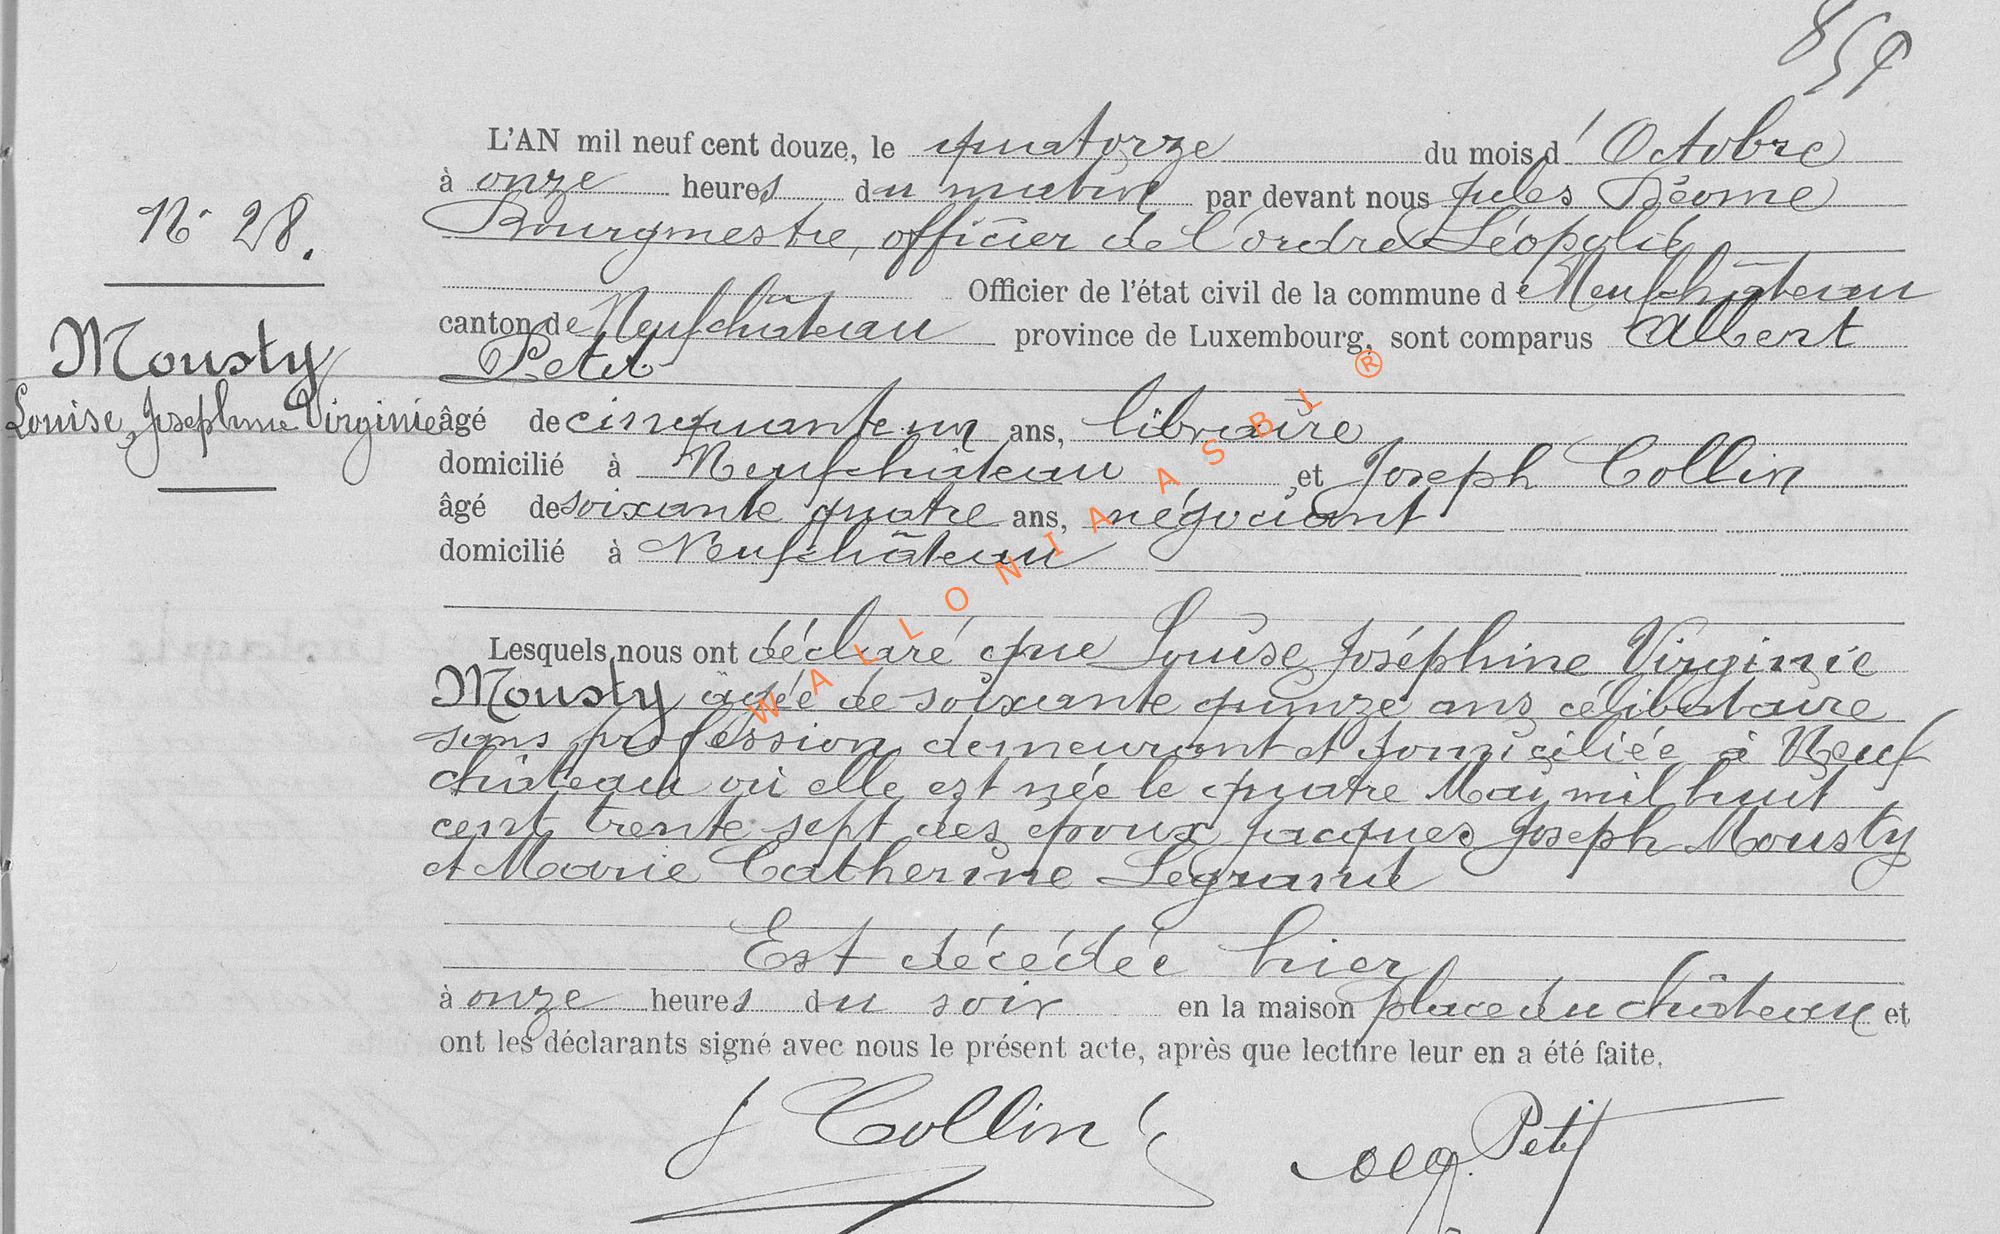 859
L'AN mil neuf cent douze, le quatorze du mois d'Octobre
à onze heures du matin par devant nous Jules Déome
Bourgmestre, officier de l'ordre Léopold
Officier de l'état civil de la commune de Neufchâteau
canton de Neufchâteau province de Luxembourg, sont comparus Albert
Petit
âgé de cinquante un ans, libraire
domicilié à Neufchâteau et Joseph Collin
âgé de soixante quatre ans, négociant
domicilié à Neufchâteau
N° 28.
Mousty
Louise, Josephine Virginie
Lesquels nous ont déclaré que Louise Joséphine Virginie
Mousty âgée de soixante quinze ans célibataire
sans profession demeurant et domiciliée à Neuf
château où elle est née le quatre Mai mil huit
cent trente sept des époux Jacques Joseph Mousty
et Marie Catherine Legrand
Est décédée hier
à onze heures du soir en la maison place du château et
ont les déclarants signé avec nous le présent acte, après que lecture leur en a été faite.
J Collin
Petit
WALLONIA ASBL ®